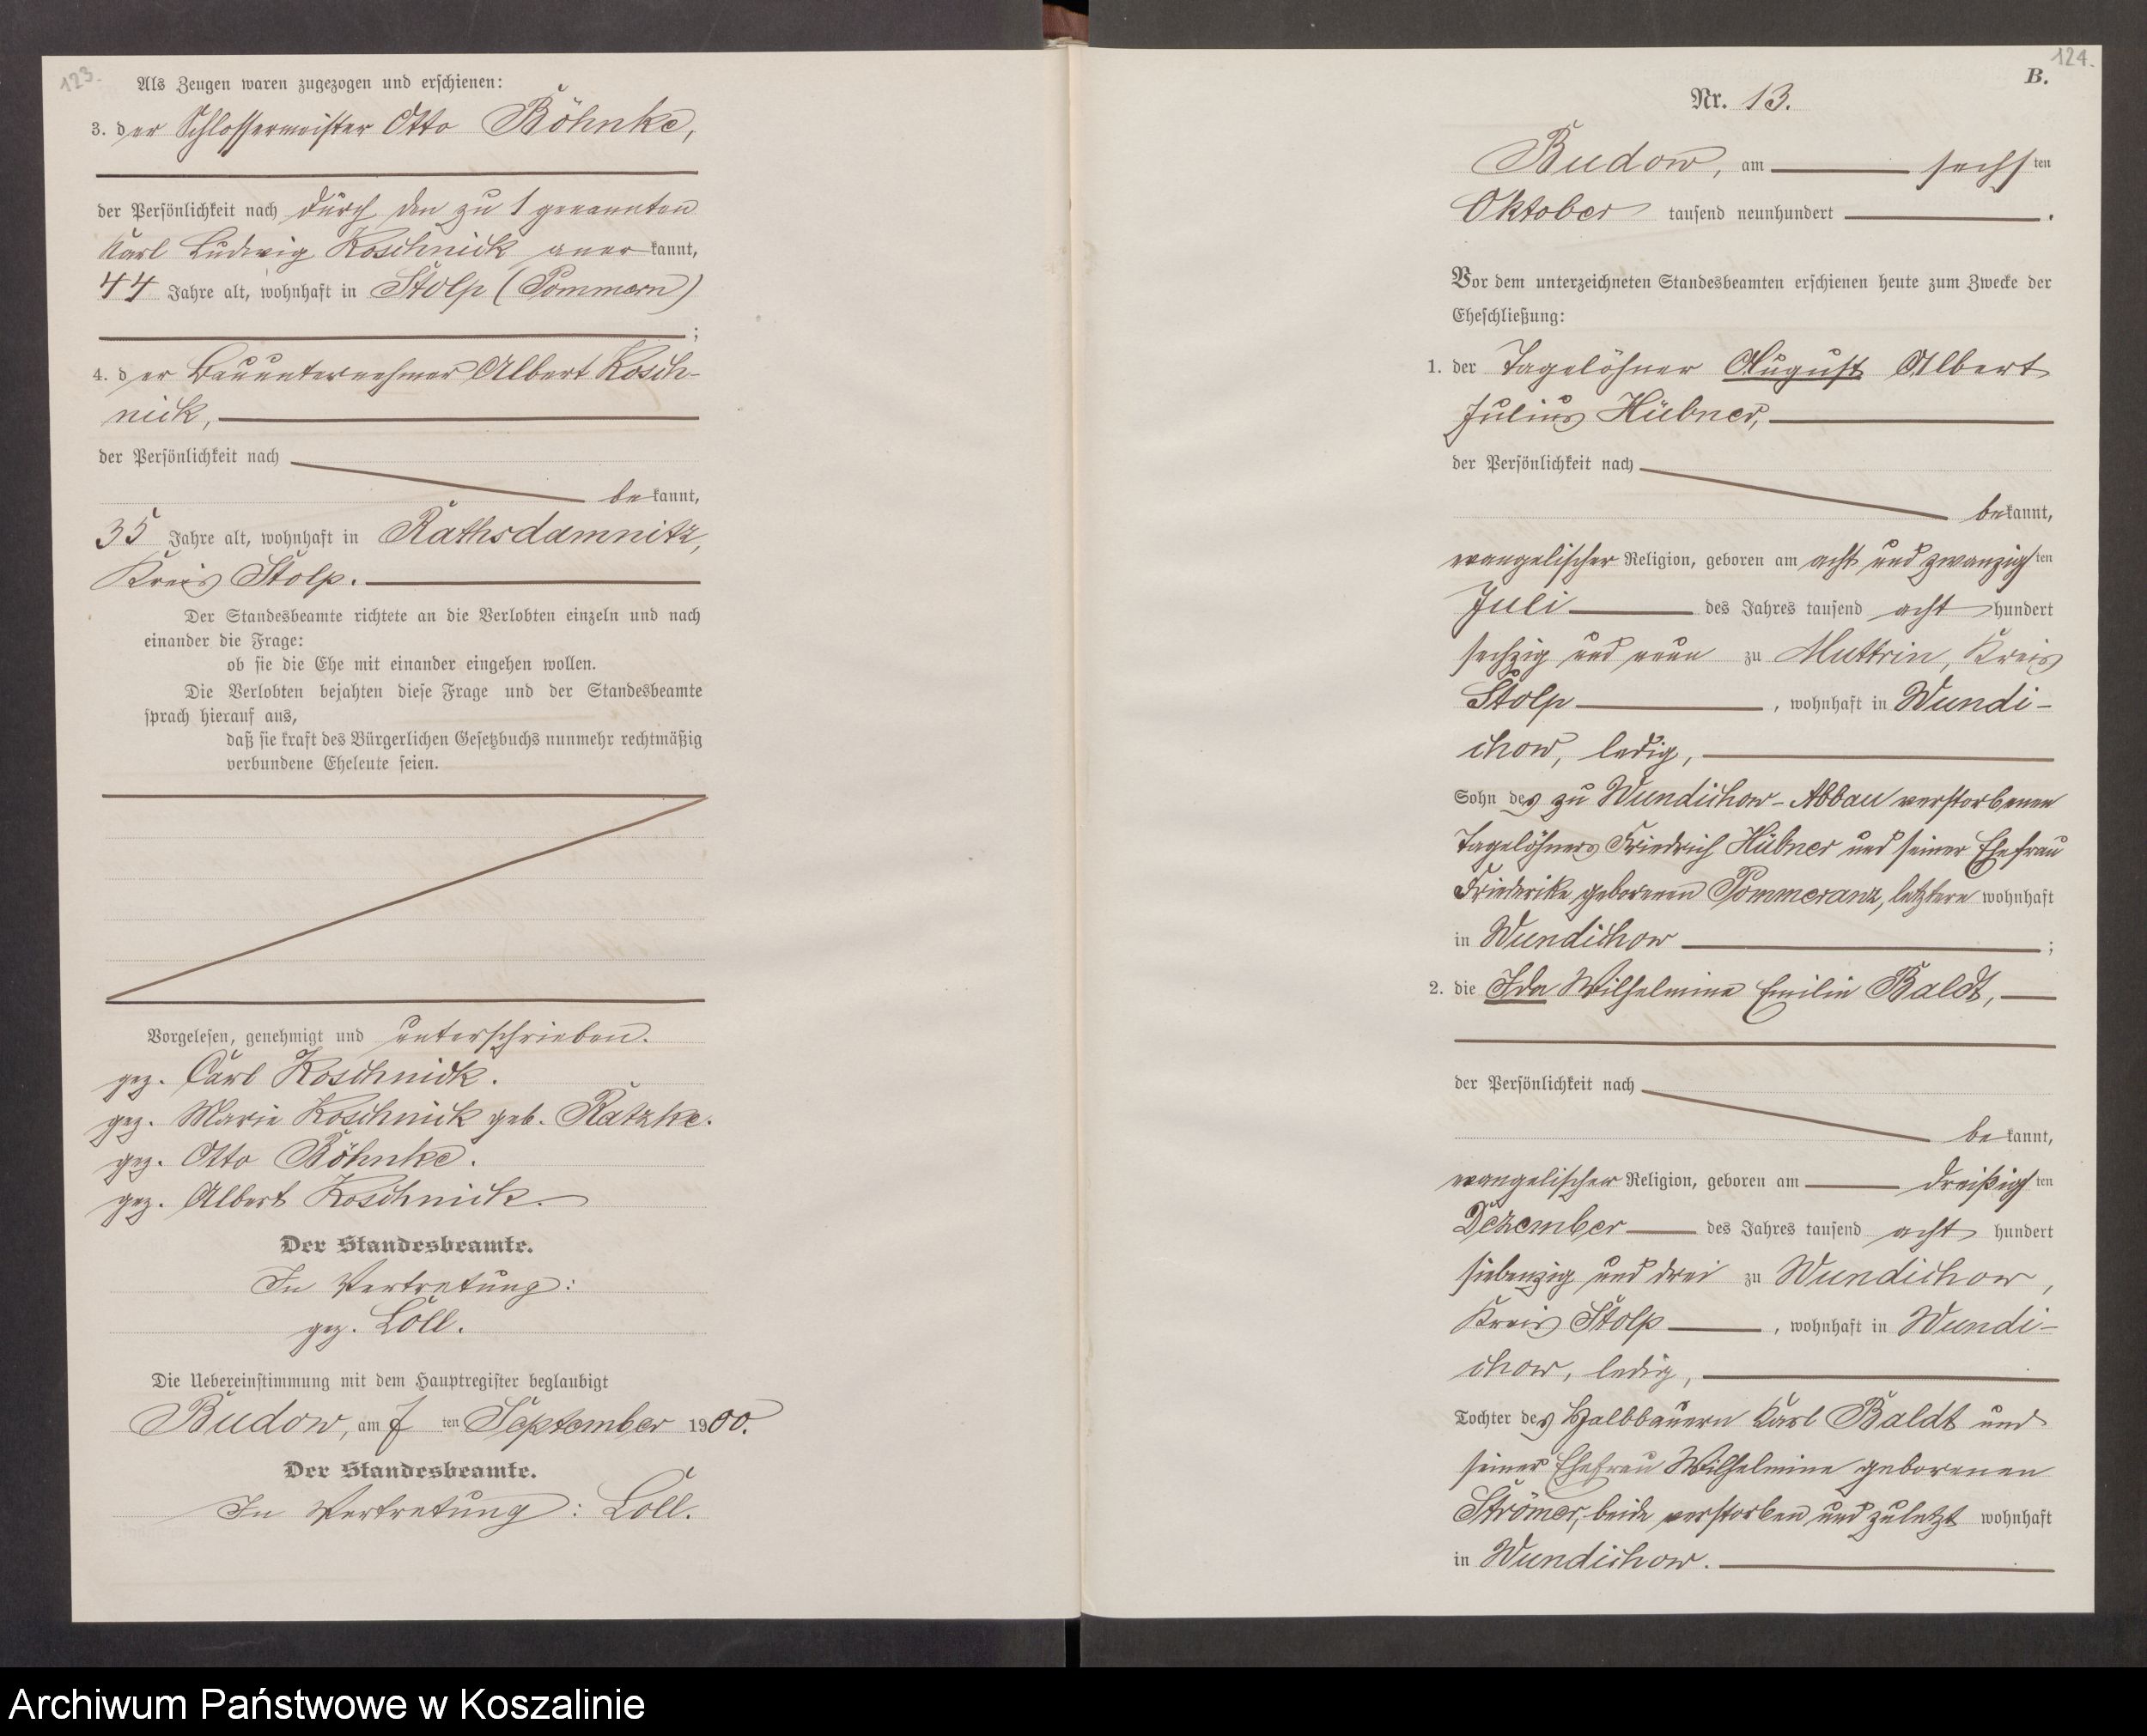 123.
Als Zeugen waren zugezogen und erschienen:
3. der Schlossermeister Otto Böhnke,
der Persönlichkeit nach durch den zu 1 genannten
Karl Ludwig Koschnick anerkannt,
44 Jahre alt, wohnhaft in Stolp (Pommern)
;
4. der Bauunternehmer Albert Kosch-
nick,
der Persönlichkeit nach
bekannt,
35 Jahre alt, wohnhaft in Rathsdamnitz,
Kreis Stolp.
Der Standesbeamte richtete an die Verlobten einzeln und nach
einander die Frage:
ob sie die Ehe mit einander eingehen wollen.
Die Verlobten bejahten diese Frage und der Standesbeamte
sprach hierauf aus,
daß sie kraft des Bürgerlichen Gesetzbuchs nunmehr rechtmäßig
verbundene Eheleute seien.
Vorgelesen, genehmigt und unterschrieben.
gez. Carl Koschnick.
gez. Marie Koschnick geb. Ratzke.
gez. Otto Böhnke.
gez. Albert Koschnick.
Der Standesbeamte.
In Vertretung:
gez. Loll.
Die Uebereinstimmung mit dem Hauptregister beglaubigt
Budow, am 7 ten September 1900.
Der Standesbeamte.
In Vertretung: Loll.
124.
B.
Nr. 13.
Budow, am sechsten
Oktober tausend neunhundert .
Vor dem unterzeichneten Standesbeamten erschienen heute zum Zwecke der
Eheschließung:
1. der Tagelöhner August Albert
Julius Hübner,
der Persönlichkeit nach
bekannt,
evangelischer Religion, geboren am acht und zwanzigsten
Juli des Jahres tausend acht hundert
sechzig und neun zu Muttrin, Kreis
Stolp , wohnhaft in Wundi-
chow, ledig,
Sohn des zu Wundichow-Abbau verstorbenen
Tagelöhners Friedrich Hübner und seiner Ehefrau
Friederike geborenen Pommeranz, letztere wohnhaft
in Wundichow ;
2. die Ida Wilhelmine Emilie Baldt,
der Persönlichkeit nach
bekannt,
evangelischer Religion, geboren am dreißigsten
Dezember des Jahres tausend acht hundert
siebenzig und drei zu Wundichow,
Kreis Stolp , wohnhaft in Wundi-
chow, ledig,
Tochter des Halbbauern Karl Baldt und
seiner Ehefrau Wilhelmine geborenen
Strömer, beide verstorben und zuletzt wohnhaft
in Wundichow.
Archiwum Państwowe w Koszalinie